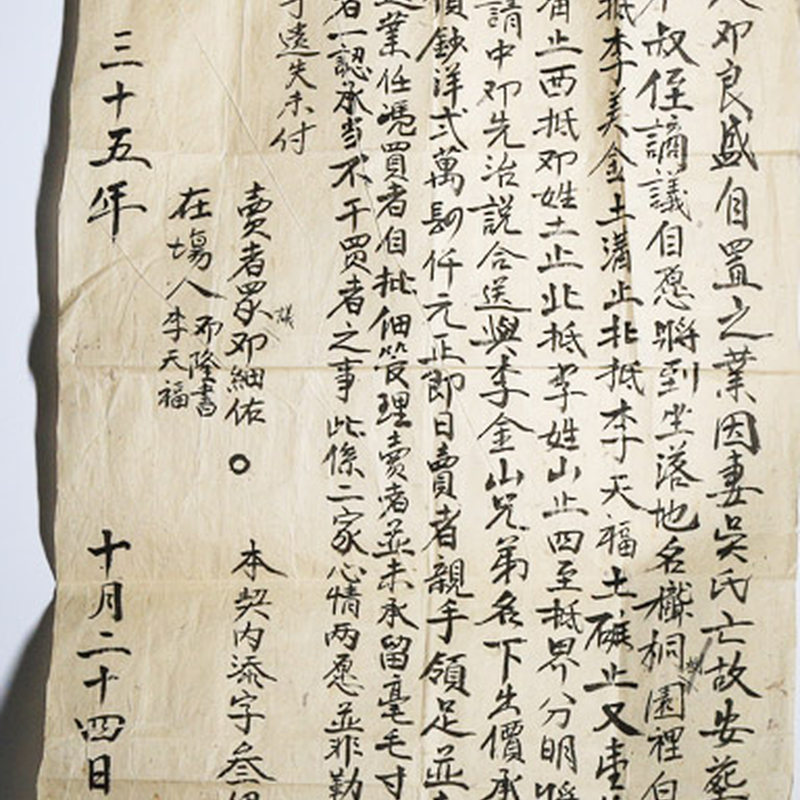 邓良盛自置之業因妻吳氏亡故安葬
叔侄謫議自愿將到坐落地名檵桐園裡自
抵李美金土溝止北抵李天福土磡止又壹
止西抵邓姓土止北抵李姓山止四至抵界分明將
請中邓先治説合送與李金山兄弟名下出價承
價鈔洋弍萬肆仟元正即日賣者親手領足並
業任憑買者自批佃管理賣者並未承留毫毛寸
者一認承当不干買者之事此係二家心情两愿並非勒
遗失未付
賣者邓細佑 本契内添字叁
議
在場人邓隆書
李天福
三十五年 十月二十四日